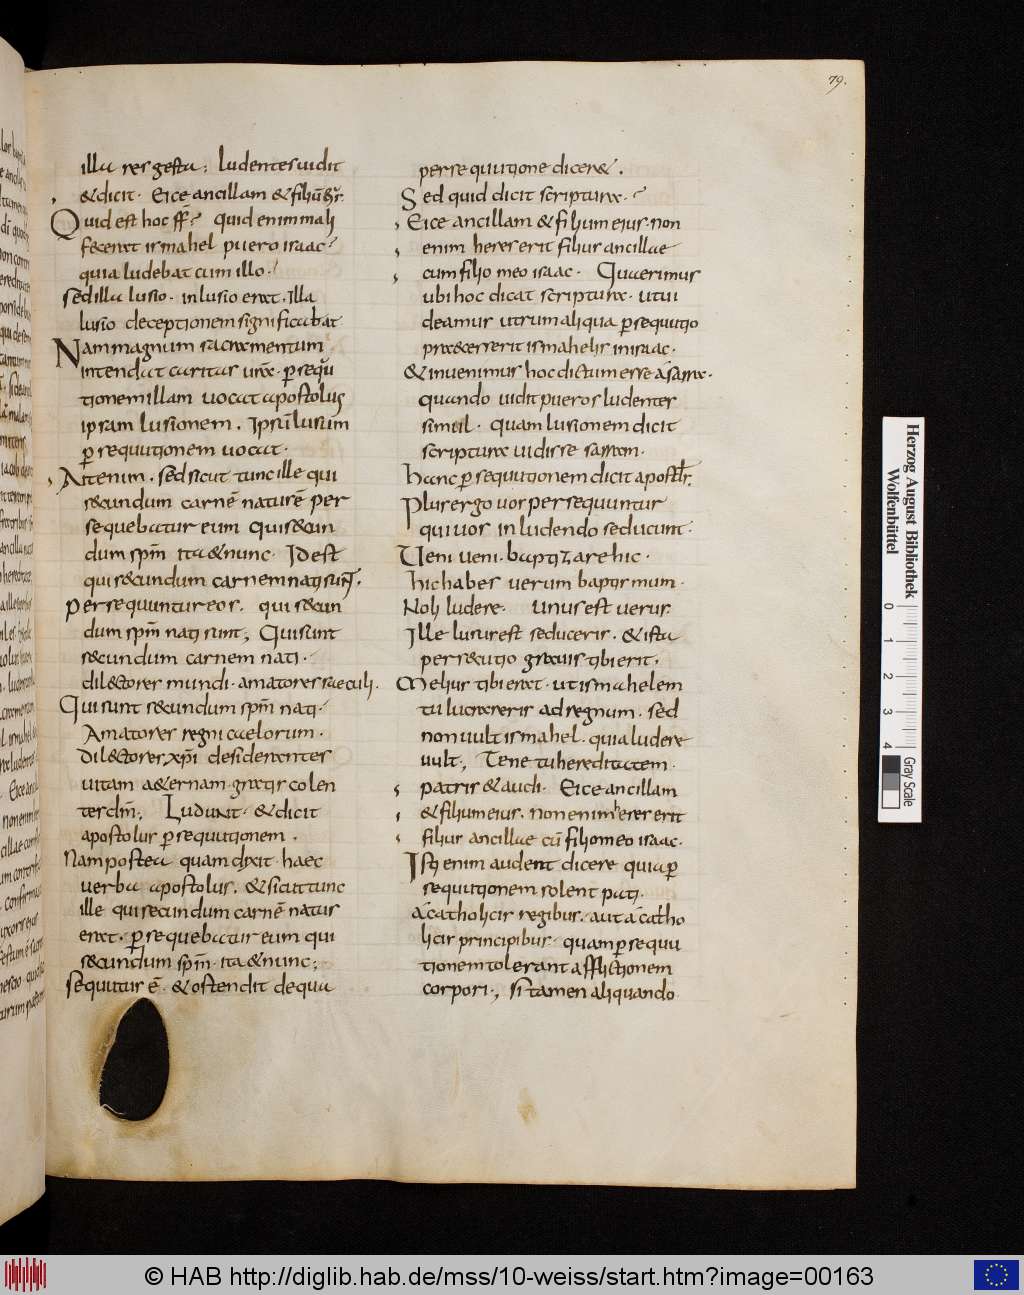 79.
illa res gesta; ludentes uidit
& dicit. Eice ancillam & filiū ei͛.
Quid est hoc f͞f? quid enim mali
fecerat ismahel puero isaac?
quia ludebat cum illo.
sed illa lusio. inlusio erat. illa
lusio deceptionem significabat
Nam magnum sacramentum
intendat caritas ur̄a. persequu
tionem illam uocat apostolus
ipsam lusionem. Ipsū lusum
persequutionem uocat.
At enim. sed sicut tunc ille qui
secundum carnē naturē per
sequebatur eum qui secun
dum spm̄ ita & nunc. Id est
qui secundum carnem nati sunt.
persequuntur eos. qui secun
dum spm̄ nati sunt; Qui sunt
secundum carnem nati.
dilectores mundi. amatores saeculi.
Qui sunt secundum spm̄ nati.
Amatores regni caelorum.
dilectores xp̄i desiderantes
uitam aeternam. gratis colen
tes dm̄; Ludunt. & dicit
apostolus persequutionem.
Nam postea quam dixit haec
uerba apostolus. & sicut tunc
ille qui secundum carnē natus
erat. persequebatur eum qui
secundum spm̄. ita & nunc;
sequitur ē. & ostendit de qua
persequutione diceret.
Sed quid dicit scriptura.?
Eice ancillam & filium eius. non
enim heres erit filius ancillae
cum filio meo isaac. Quaerimus
ubi hoc dicat scriptura. ut ui
deamus utrum aliqua persequutio
praecesserit ismahelis in isaac.
& inuenimus hoc dictum esse a sarra.
quando uidit pueros ludentes
simul. quam lusionem dicit
scriptura uidisse sarram.
hanc persequutionem dicit apostl̄s.
Plus ergo uos persequuntur
qui uos inludendo seducunt.
Ueni ueni. baptizare hic.
hic habes uerum baptismum.
Noli ludere. unus est uerus.
Ille lusus est seduceris. & ista
persecutio grauis tibi erit.
Melius tibi erat. ut ismahelem
tu lucrareris ad regnum. sed
non uult ismahel. quia ludere
uult; Tene tu hereditatem
patris & audi. Eice ancillam
& filium eius. non enim heres erit
filius ancillae cū filio meo isaac.
Isti enim audent dicere quia per
sequutionem solent pati.
a catholicis regibus. aut a catho
licis principibus. quam persequu
tionem tolerant afflictionem
corpori; si tamen aliquando
Herzog August Bibliothek
Wolfenbüttel
0 1 2 3 4
Gray Scale
© HAB http://diglib.hab.de/mss/10-weiss/start.htm?image=00163